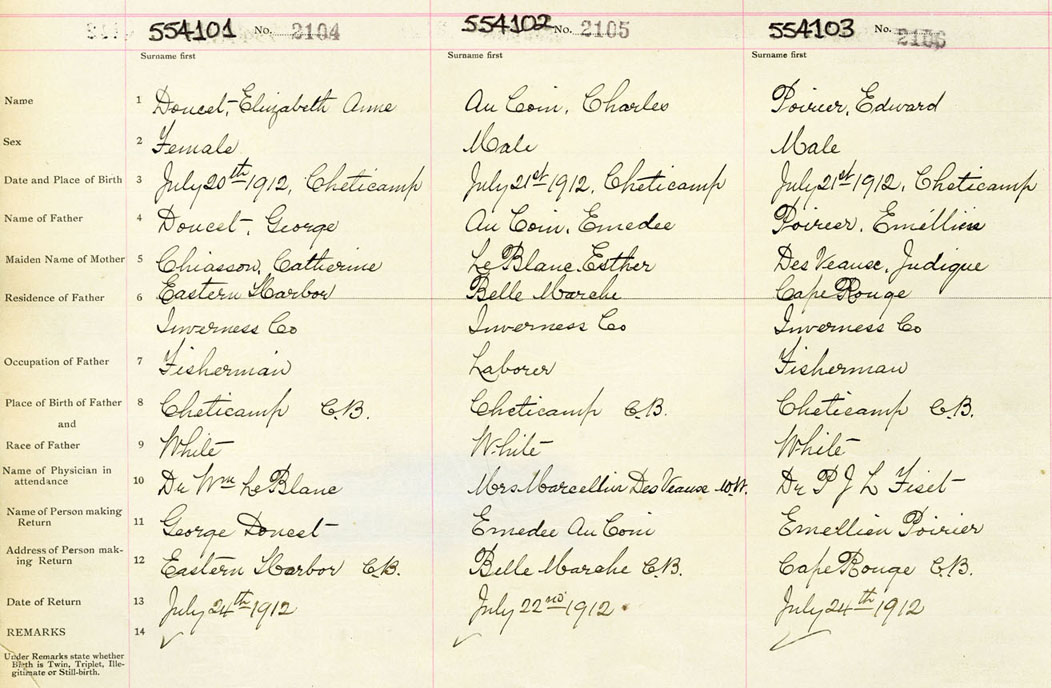 554101 No. 2104 554102 No. 2105 554103 No. 2106
Surname first Surname first Surname first
Name 1 Doucet, Elizabeth Anne Au Coin, Charles Poirier, Edward
Sex 2 Female Male Male
Date and Place of Birth 3 July 20th 1912, Cheticamp July 21st 1912, Cheticamp July 21st 1912, Cheticamp
Name of Father 4 Doucet, George Au Coin, Emedee Poirier, Emellien
Maiden Name of Mother 5 Chiasson, Catherine Le Blanc, Esther Des Veause, Judique
Residence of Father 6 Eastern Harbor Belle Marche Cape Rouge
Inverness Co Inverness Co Inverness Co
Occupation of Father 7 Fisherman Laborer Fisherman
Place of Birth of Father 8 Cheticamp C.B. Cheticamp C.B. Cheticamp C.B.
and
Race of Father 9 White White White
Name of Physician in
attendance 10 Dr Wm Le Blanc Mrs. Marcellin Des Veause M.W. Dr P J L Fiset
Name of Person making
Return 11 George Doucet Emedee Au Coin Emellien Poirier
Address of Person mak-
ing Return 12 Eastern Harbor C.B. Belle Marche C.B. Cape Rouge C.B.
Date of Return 13 July 24th 1912 July 22nd 1912 July 24th 1912
REMARKS 14
Under Remarks state whether
Birth is Twin, Triplet, Ille-
gitimate or Still-birth.